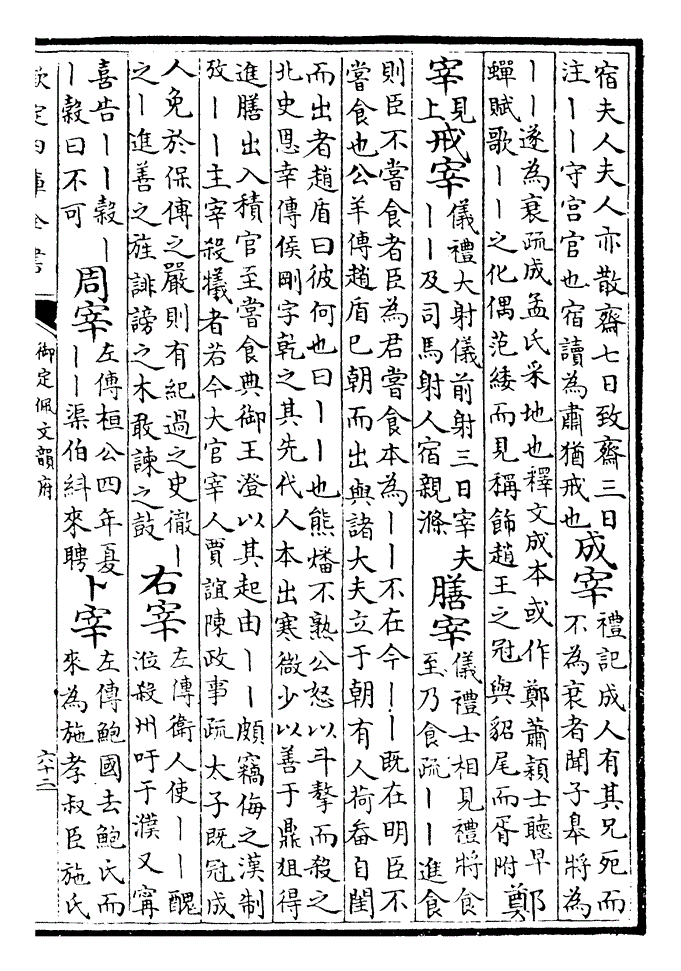 宿夫人夫人亦散齋七日致齋三日
注丨丨守宫官也宿讀為肅猶戒也
成宰
禮記成人有其兄死而
不為衰者聞子臯將為
丨丨遂為衰疏成孟氏采地也釋文成本或作鄭蕭穎士聽早
蟬賦歌丨丨之化偶范緌而見稱飾趙王之冠與貂尾而胥附
鄭
宰
見
上
戒宰
儀禮大射儀前射三日宰夫
丨丨及司馬射人宿親滌
膳宰
儀禮士相見禮將食
至乃食疏丨丨進食
則臣不嘗食者臣為君嘗食本為丨丨不在今丨丨既在明臣不
嘗食也公羊傳趙盾已朝而出與諸大夫立于朝有人荷畚自閨
而出者趙盾曰彼何也曰丨丨也熊燔不熟公怒以斗摮而殺之
北史恩幸傳侯剛字乾之其先代人本出寒微少以善于鼎俎得
進膳出入積官至嘗食典御王澄以其起由丨丨頗竊侮之漢制
攷丨丨主宰殺犧者若今大官宰人賈誼陳政事疏太子既冠成
人免於保傅之嚴則有紀過之史徹丨
之丨進善之旌誹謗之木敢諫之鼓
右宰
左傳衛人使丨丨醜
涖殺州吁于濮又甯
喜告丨丨榖丨
丨榖曰不可
周宰
左傳桓公四年夏
丨丨渠伯糾來聘
卜宰
左傳鮑國去鮑氏而
來為施孝叔臣施氏
欽定四庫全書
御定佩文韻府
六十二